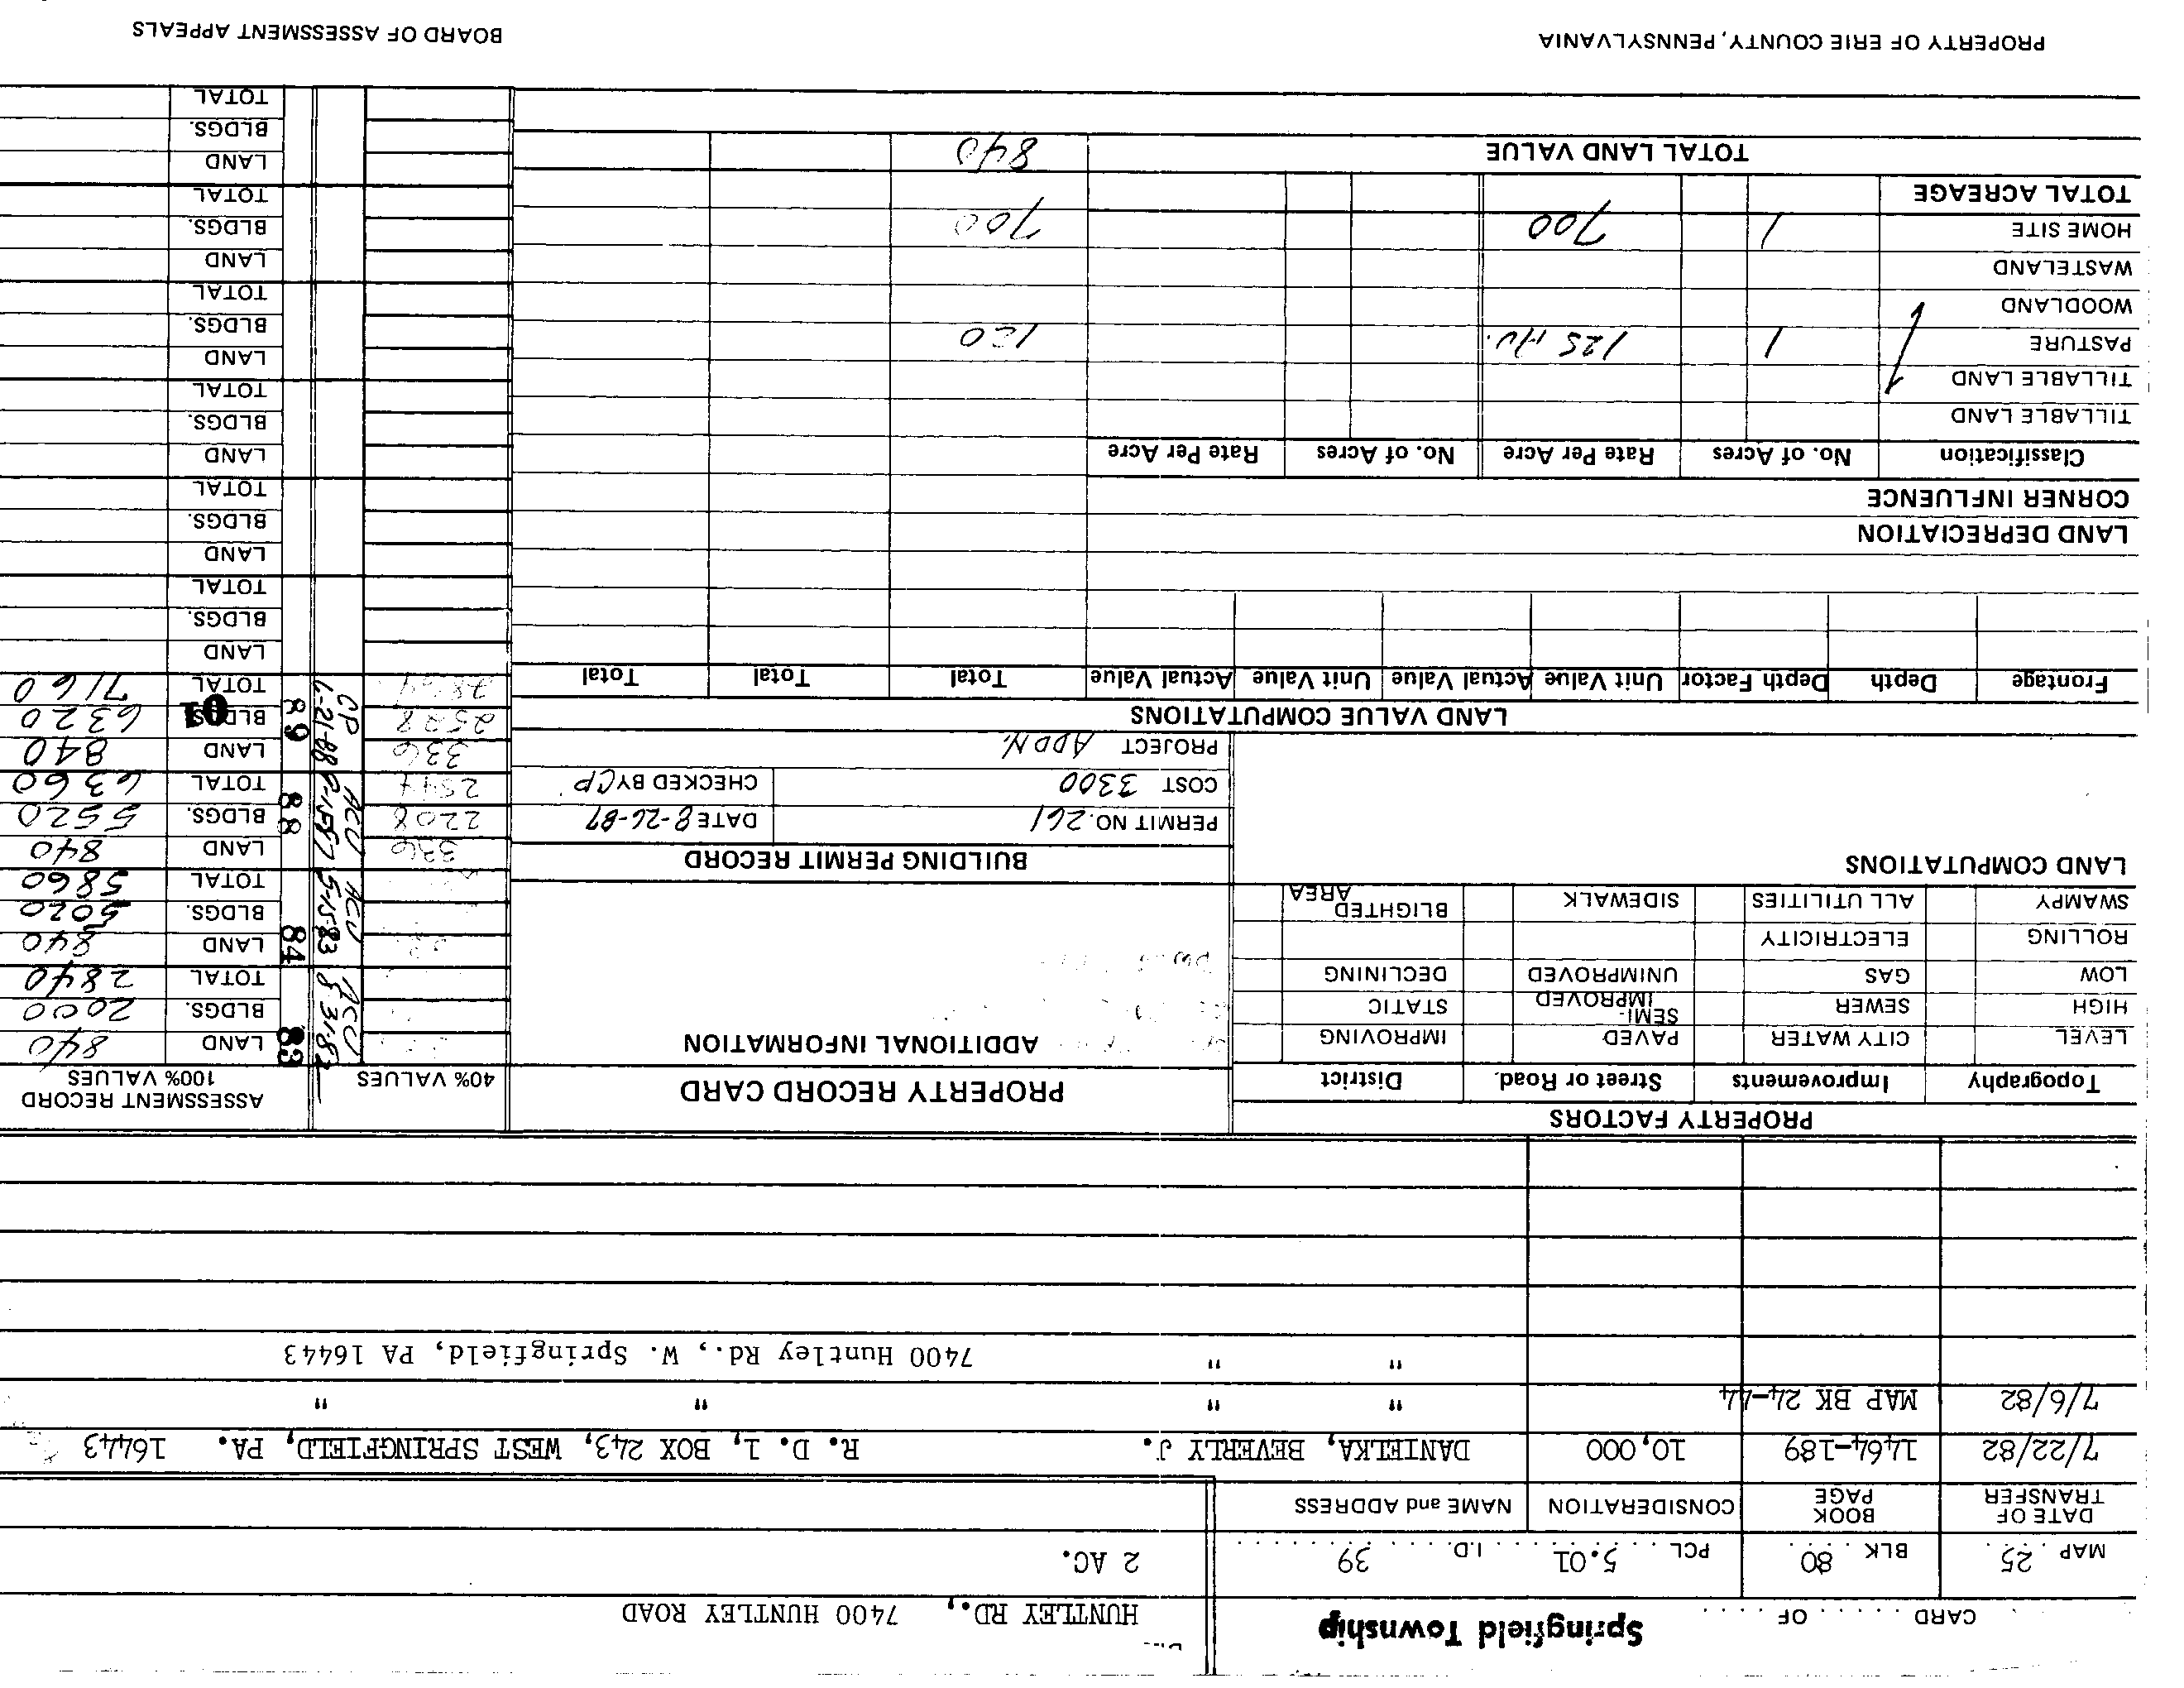 CARD ...... OF ......
Springfield Township
HUNTLEY RD., 7400 HUNTLEY ROAD
MAP 25 BLK 80 PCL 5.01 I.D. 39
2 AC.
DATE OF TRANSFER BOOK PAGE CONSIDERATION NAME and ADDRESS
7/22/82 1464-189 10,000 DANIELKA, BEVERLY J. R. D. 1, BOX 243, WEST SPRINGFIELD, PA. 16443
7/6/82 MAP BK 24-44 " " " "
" " 7400 Huntley Rd., W. Springfield, PA 16443
PROPERTY FACTORS
Topography Improvements Street or Road. District
LEVEL CITY WATER PAVED IMPROVING
HIGH SEWER SEMI-IMPROVED STATIC
LOW GAS UNIMPROVED DECLINING
ROLLING ELECTRICITY
SWAMPY ALL UTILITIES SIDEWALK BLIGHTED AREA
LAND COMPUTATIONS
PROPERTY RECORD CARD
ADDITIONAL INFORMATION
BUILDING PERMIT RECORD
PERMIT NO. 261 DATE 8-26-87
COST 3300 CHECKED BY CP
PROJECT ADDN.
40% VALUES ASSESSMENT RECORD 100% VALUES
ACW 8-31-82 83 LAND 840
BLDGS. 2000
TOTAL 2840
ACW 5-15-83 84 LAND 840
BLDGS. 5020
TOTAL 5860
336 ACW 88 LAND 840
2208 BLDGS. 5520
2544 TOTAL 6360
336 CP 6-21-88 89 LAND 840
2528 BLDGS. 6320
TOTAL 7160
01
LAND
BLDGS.
TOTAL
LAND
BLDGS.
TOTAL
LAND
BLDGS.
TOTAL
LAND
BLDGS.
TOTAL
LAND
BLDGS.
TOTAL
LAND
BLDGS.
TOTAL
LAND VALUE COMPUTATIONS
Frontage Depth Depth Factor Unit Value Actual Value Unit Value Actual Value Total Total Total
LAND DEPRECIATION
CORNER INFLUENCE
Classification No. of Acres Rate Per Acre No. of Acres Rate Per Acre
TILLABLE LAND
TILLABLE LAND
PASTURE 1 125 AV.
WOODLAND
WASTELAND
HOME SITE 1 700 700
TOTAL ACREAGE
TOTAL LAND VALUE 840
PROPERTY OF ERIE COUNTY, PENNSYLVANIA
BOARD OF ASSESSMENT APPEALS